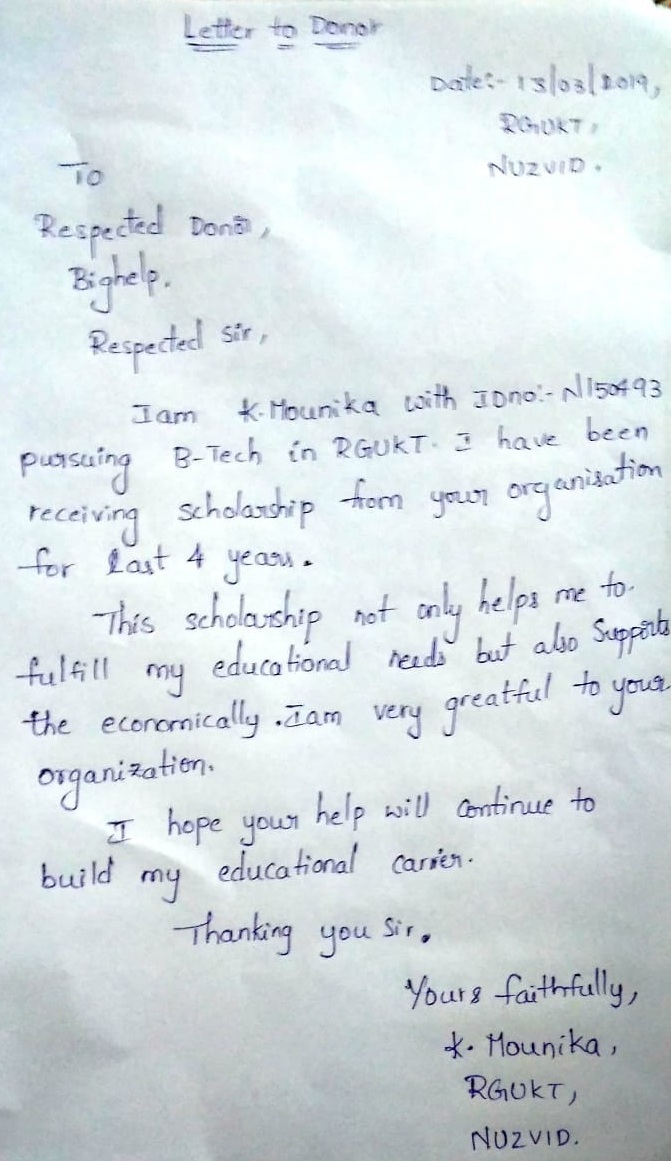 Letter to Donor
Date:- 13/03/2019,
RGUKT,
NUZVID.
To
Respected Donor,
Bighelp.
Respected sir,
Iam K. Mounika with IDno:- N150493
pursuing B-Tech in RGUKT. I have been
receiving scholarship from your organisation
for last 4 years.
This scholarship not only helps me to
fulfill my educational needs but also supports
the economically. Iam very greatful to your
organization.
I hope your help will continue to
build my educational carrier.
Thanking you sir,
Yours faithfully,
K. Mounika,
RGUKT,
NUZVID.